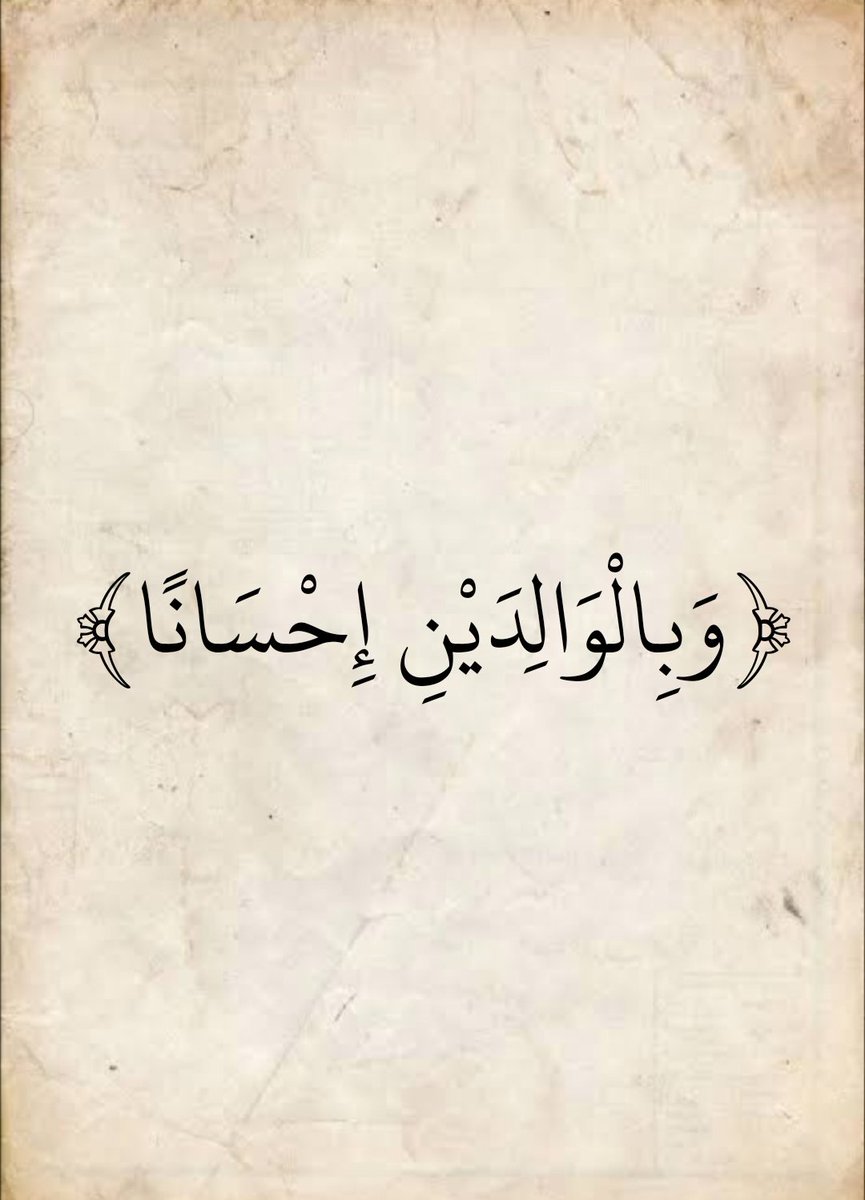 ﴿وَبِالْوَالِدَيْنِ إِحْسَانًا﴾